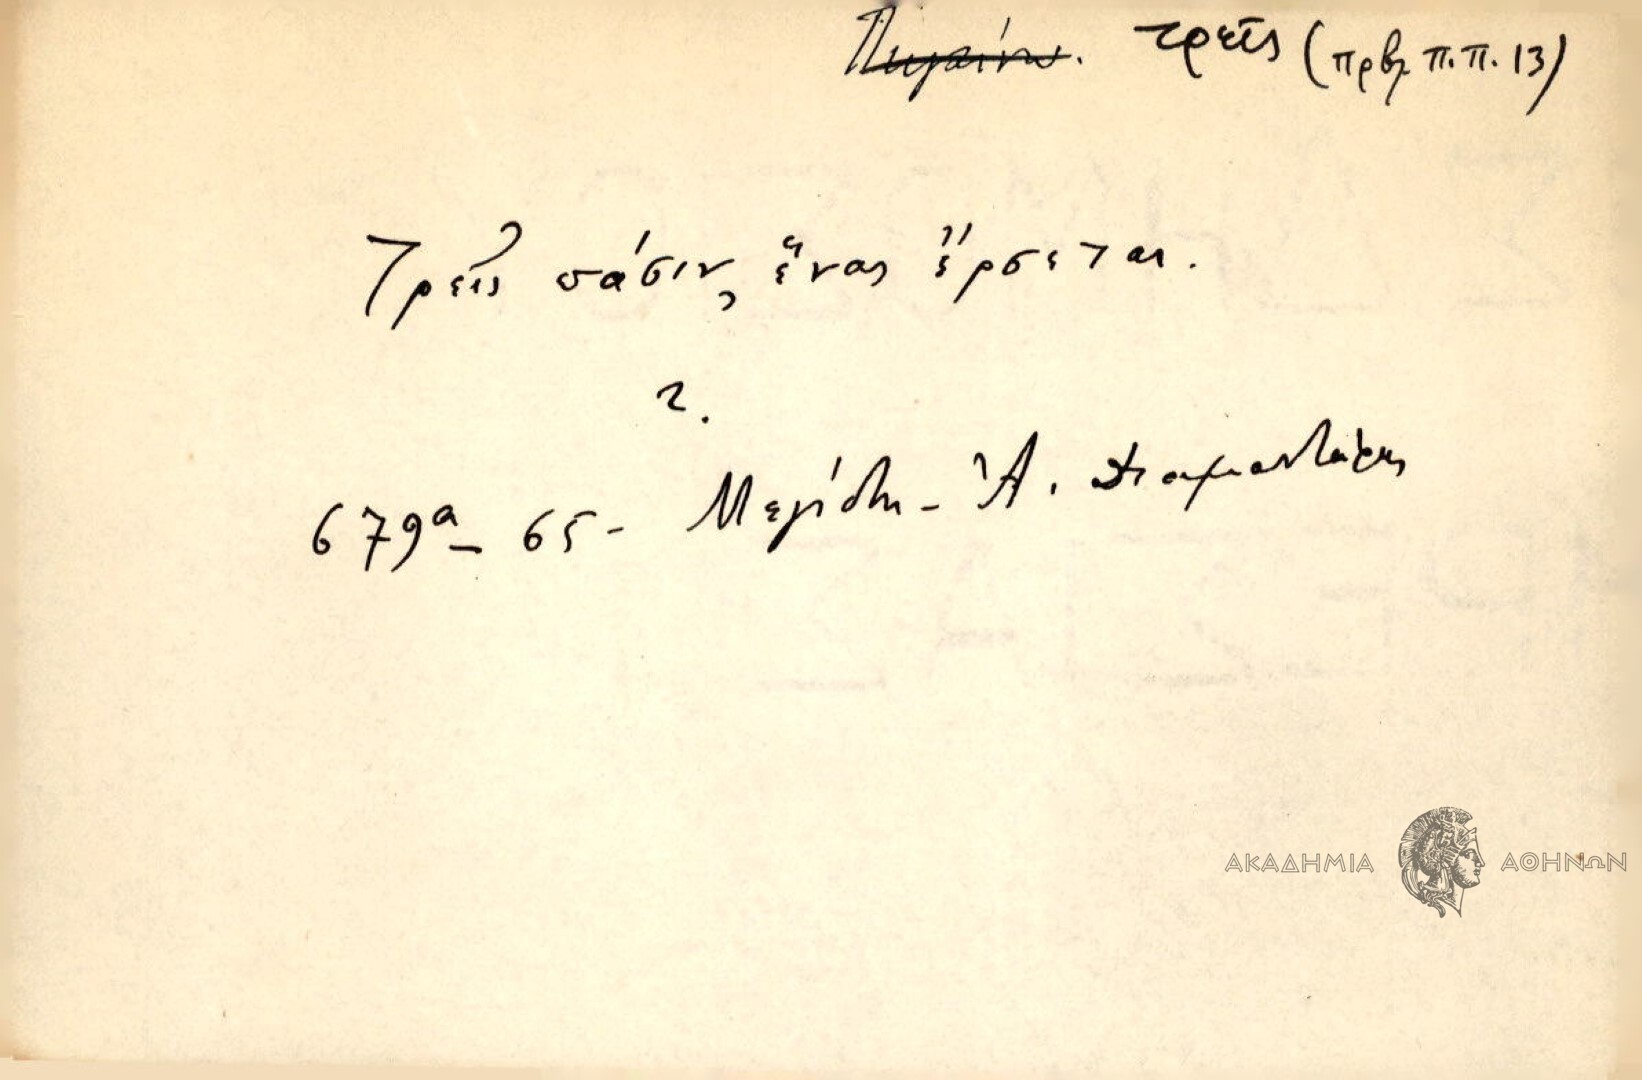 Πηγαίνω. τρεῖς (πρβλ. π.π. 13)
Τρεῖς πάσιν, ἕνας ἔρσεται.
2.
679α – 65 – Μεγίστη – Ἀ. Διαμαντάρας
ΑΚΑΔΗΜΙΑ ΑΘΗΝΩΝ